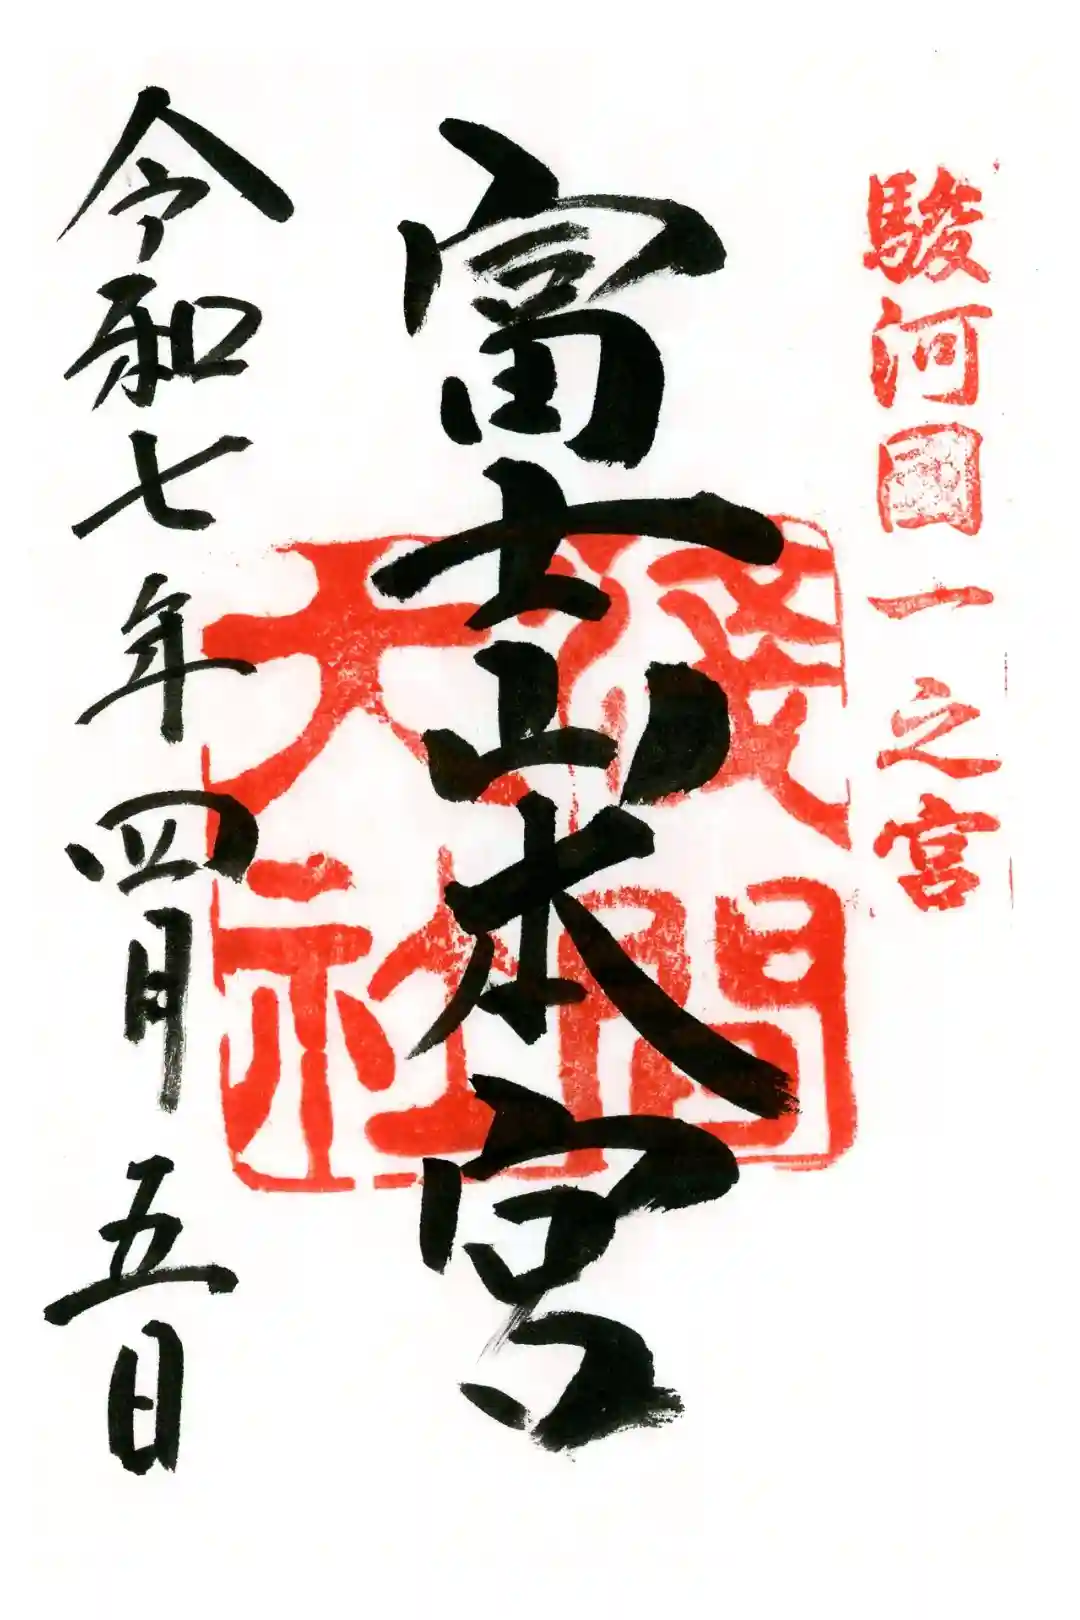 駿河國一之宮
富士山本宮
浅間
大社
令和七年四月五日